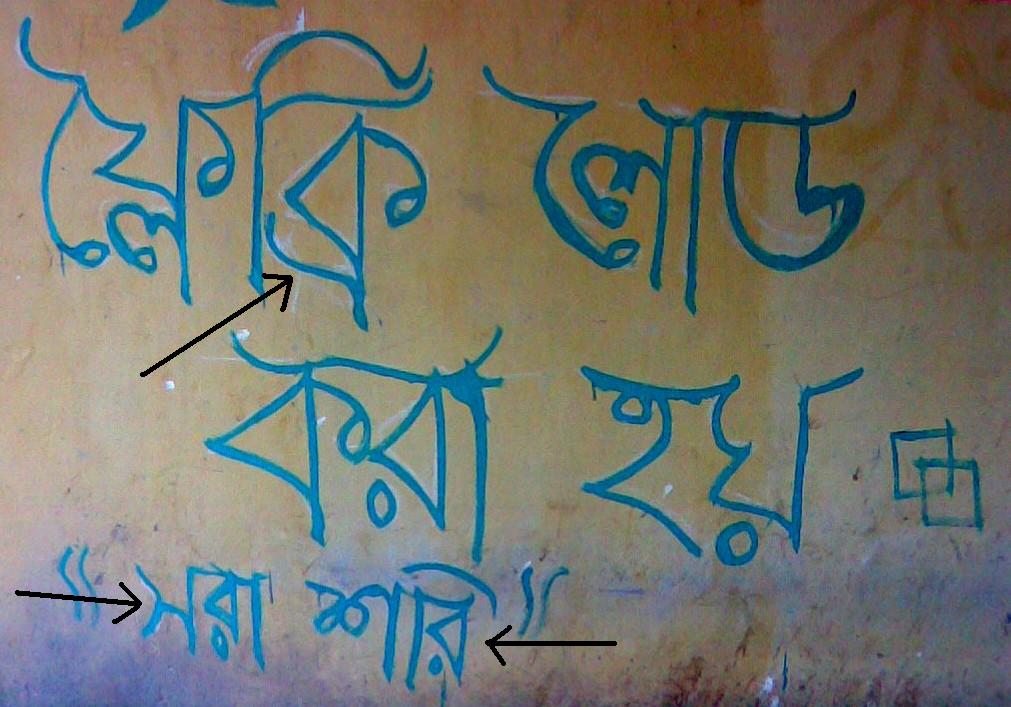 ফ্লেকি লোড
করা হয়
"সরা শরি"